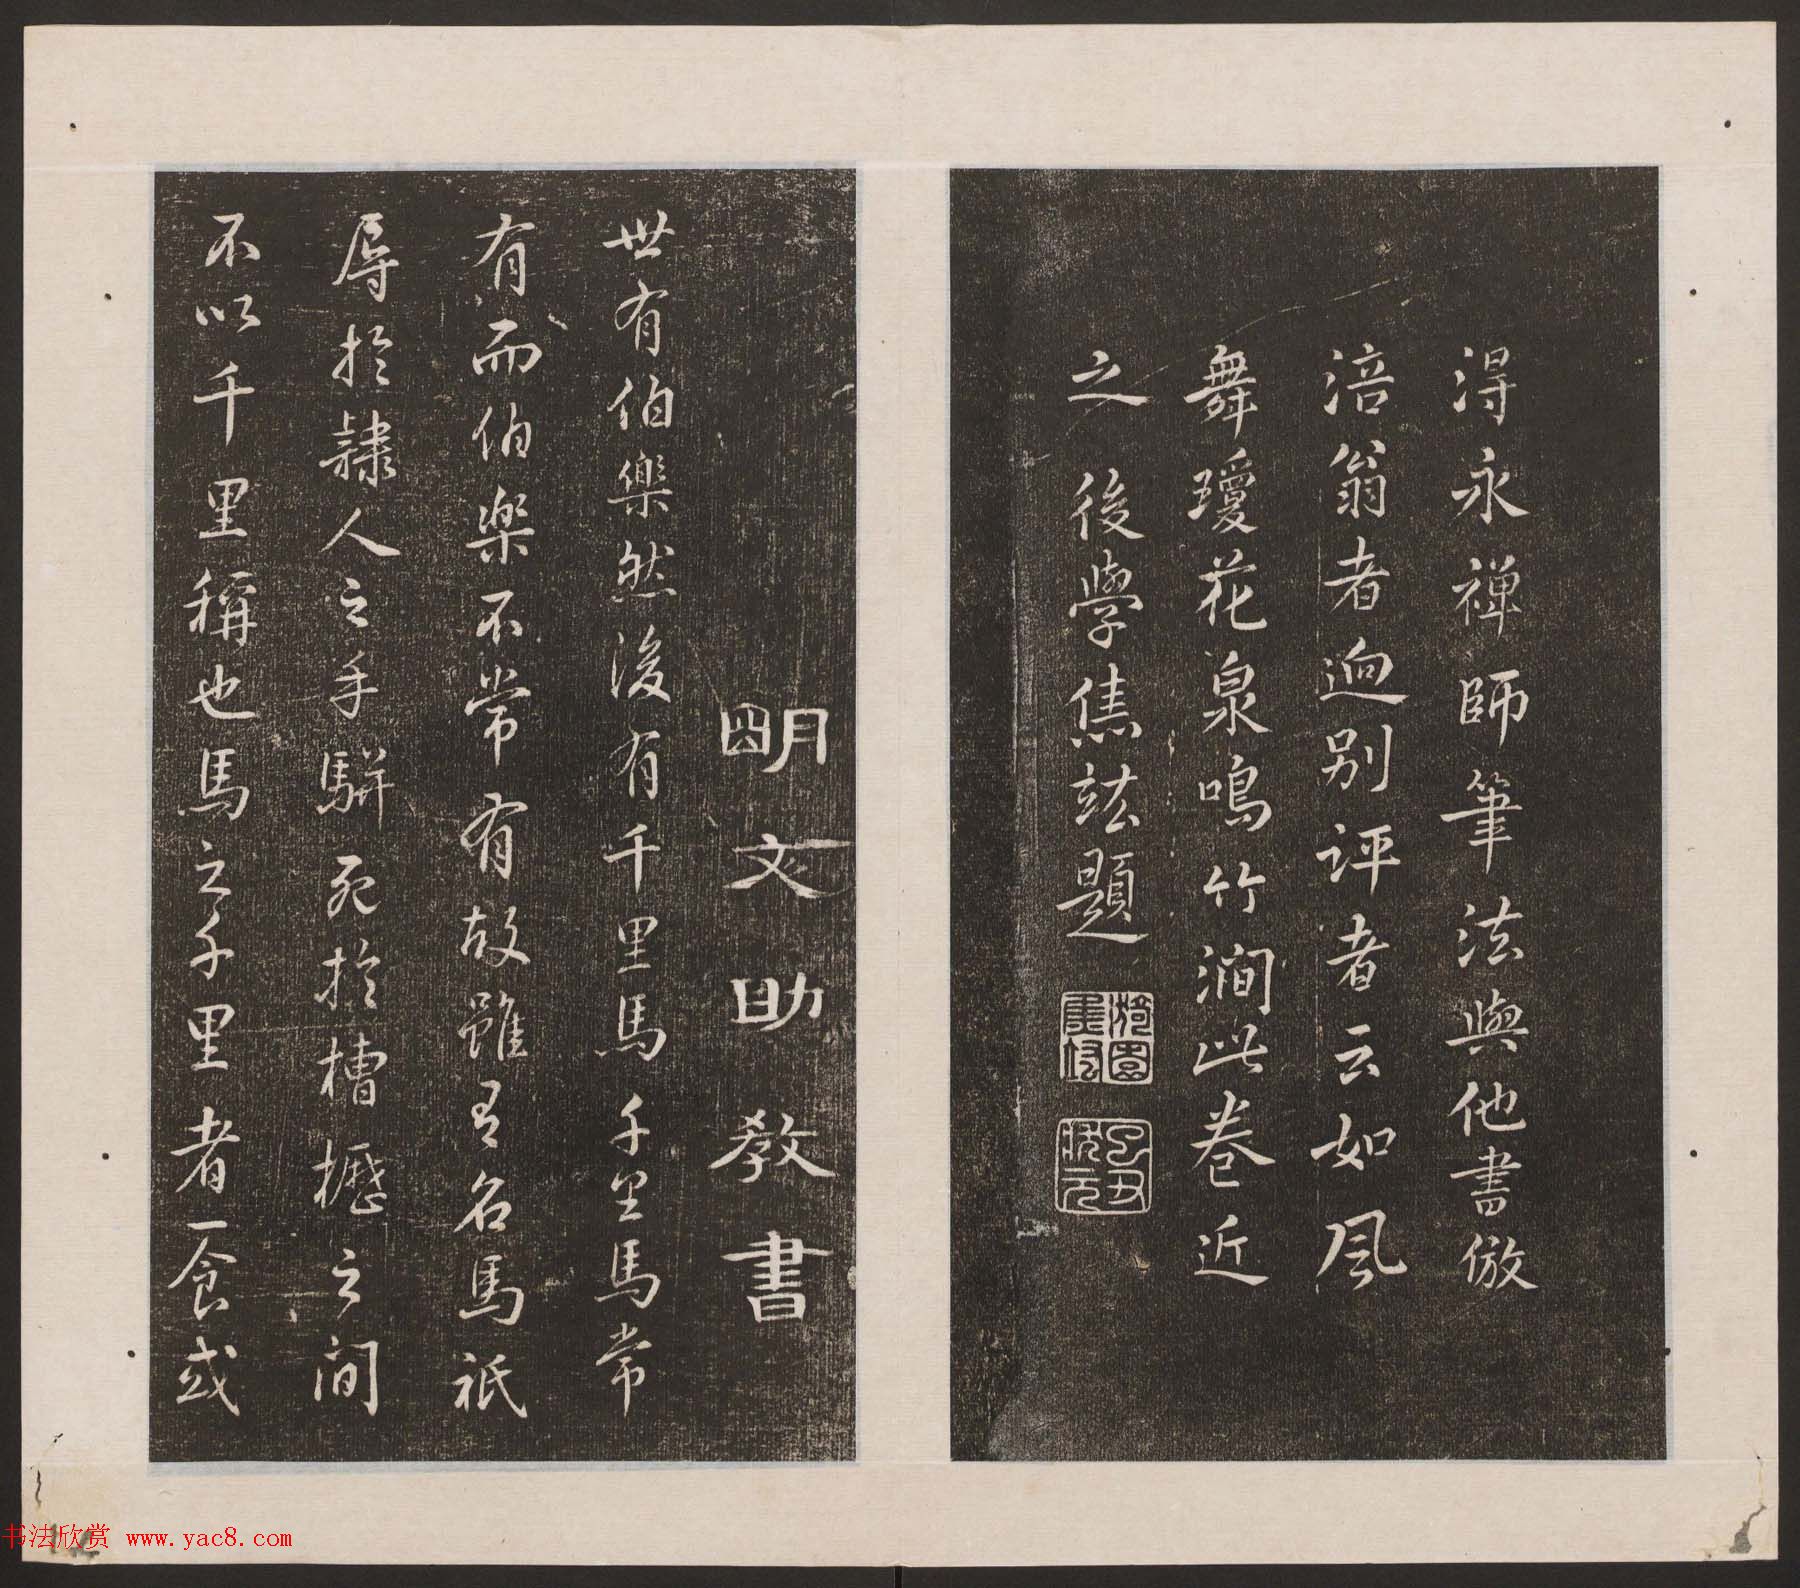 得永禅師筆法與他書倣
涪翁者迥别评者云如風
舞瓊花泉鳴竹澗此卷近
之 後學焦竑題
明文助教書
世有伯樂然後有千里馬千里馬常
有而伯樂不常有故雖有名馬祇
辱於隸人之手駢死於槽櫪之間
不以千里稱也馬之千里者一食或
书法欣赏 www.yac8.com